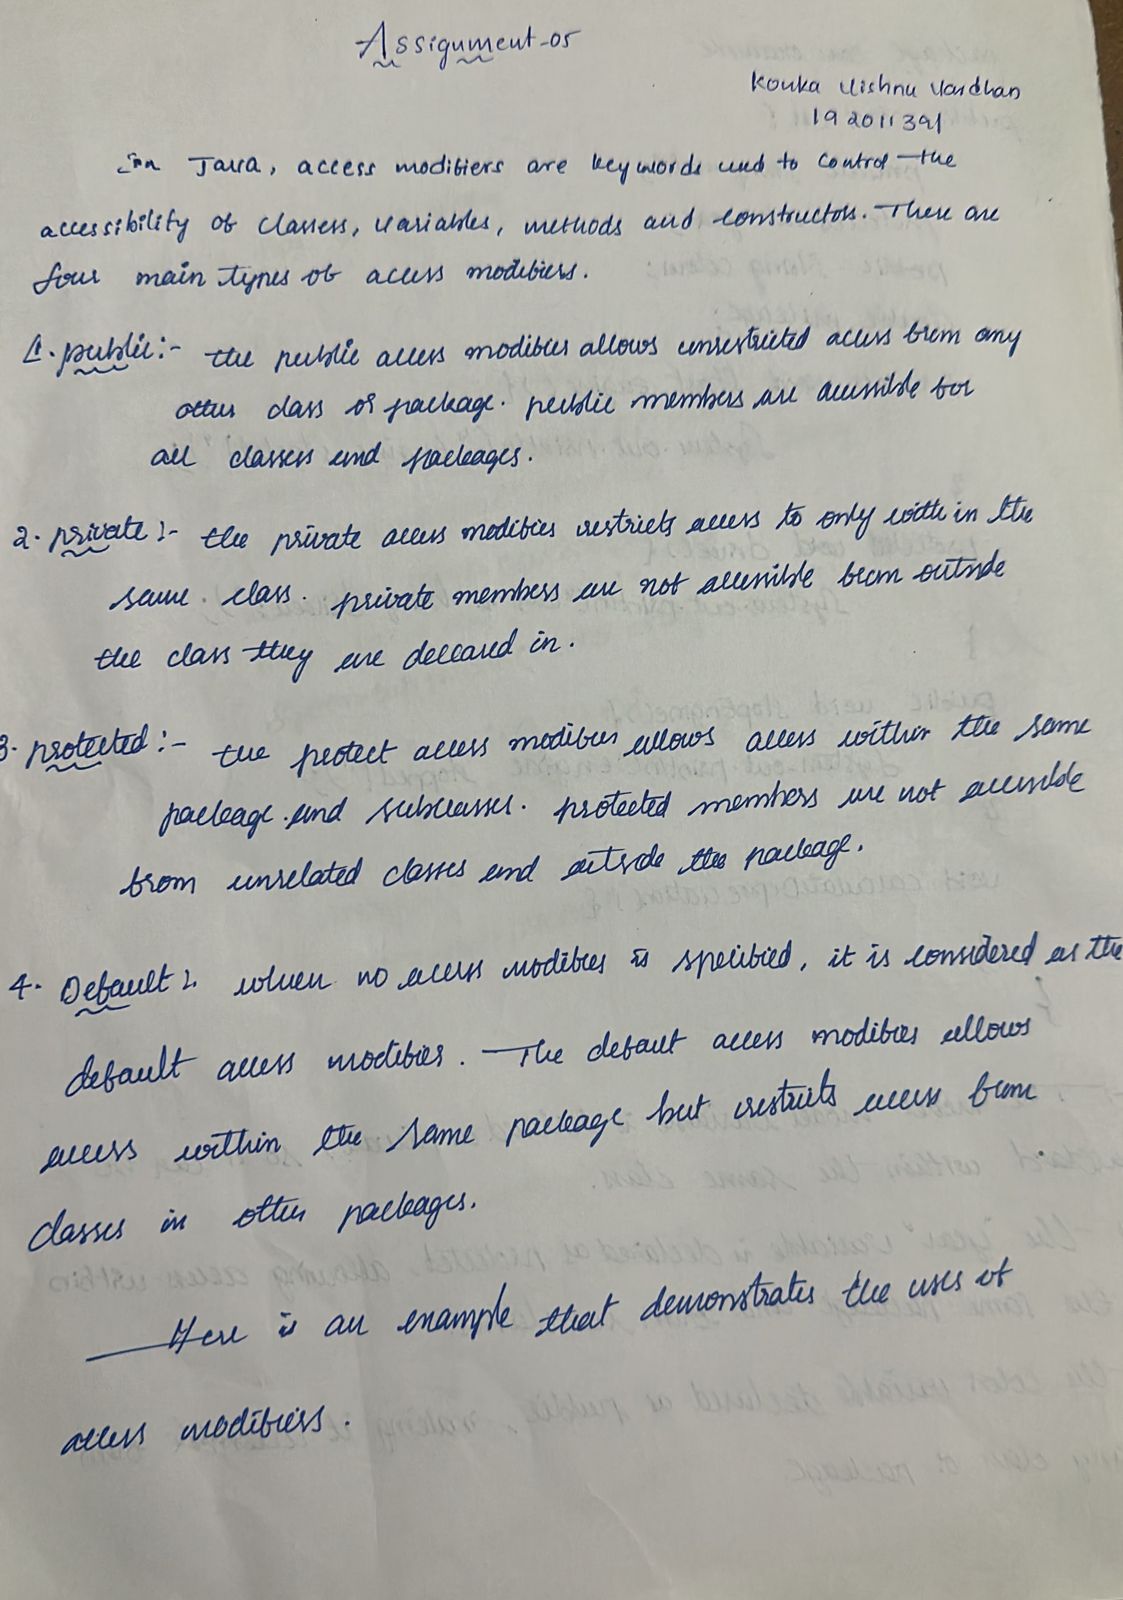 Assignment-05
Konka Vishnu Vardhan
192011391
in Java, access modifiers are keywords used to control the
accessibility of classes, variables, methods and constructors. There are
four main types of access modifiers.
1. public:- the public access modifier allows unrestricted access from any
other class or package. public members are accessible for
all classes and packages.
2. private:- the private access modifier restricts access to only with in the
same class. private members are not accessible from outside
the class they are declared in.
3. protected:- the protect access modifier allows access within the same
package and subclasses. protected members are not accessible
from unrelated classes and outside the package.
4. Default:. when no access modifier is specified, it is considered as the
default access modifier. The default access modifier allows
access within the same package but restricts access from
classes in other packages.
Here is an example that demonstrates the uses of
access modifiers.